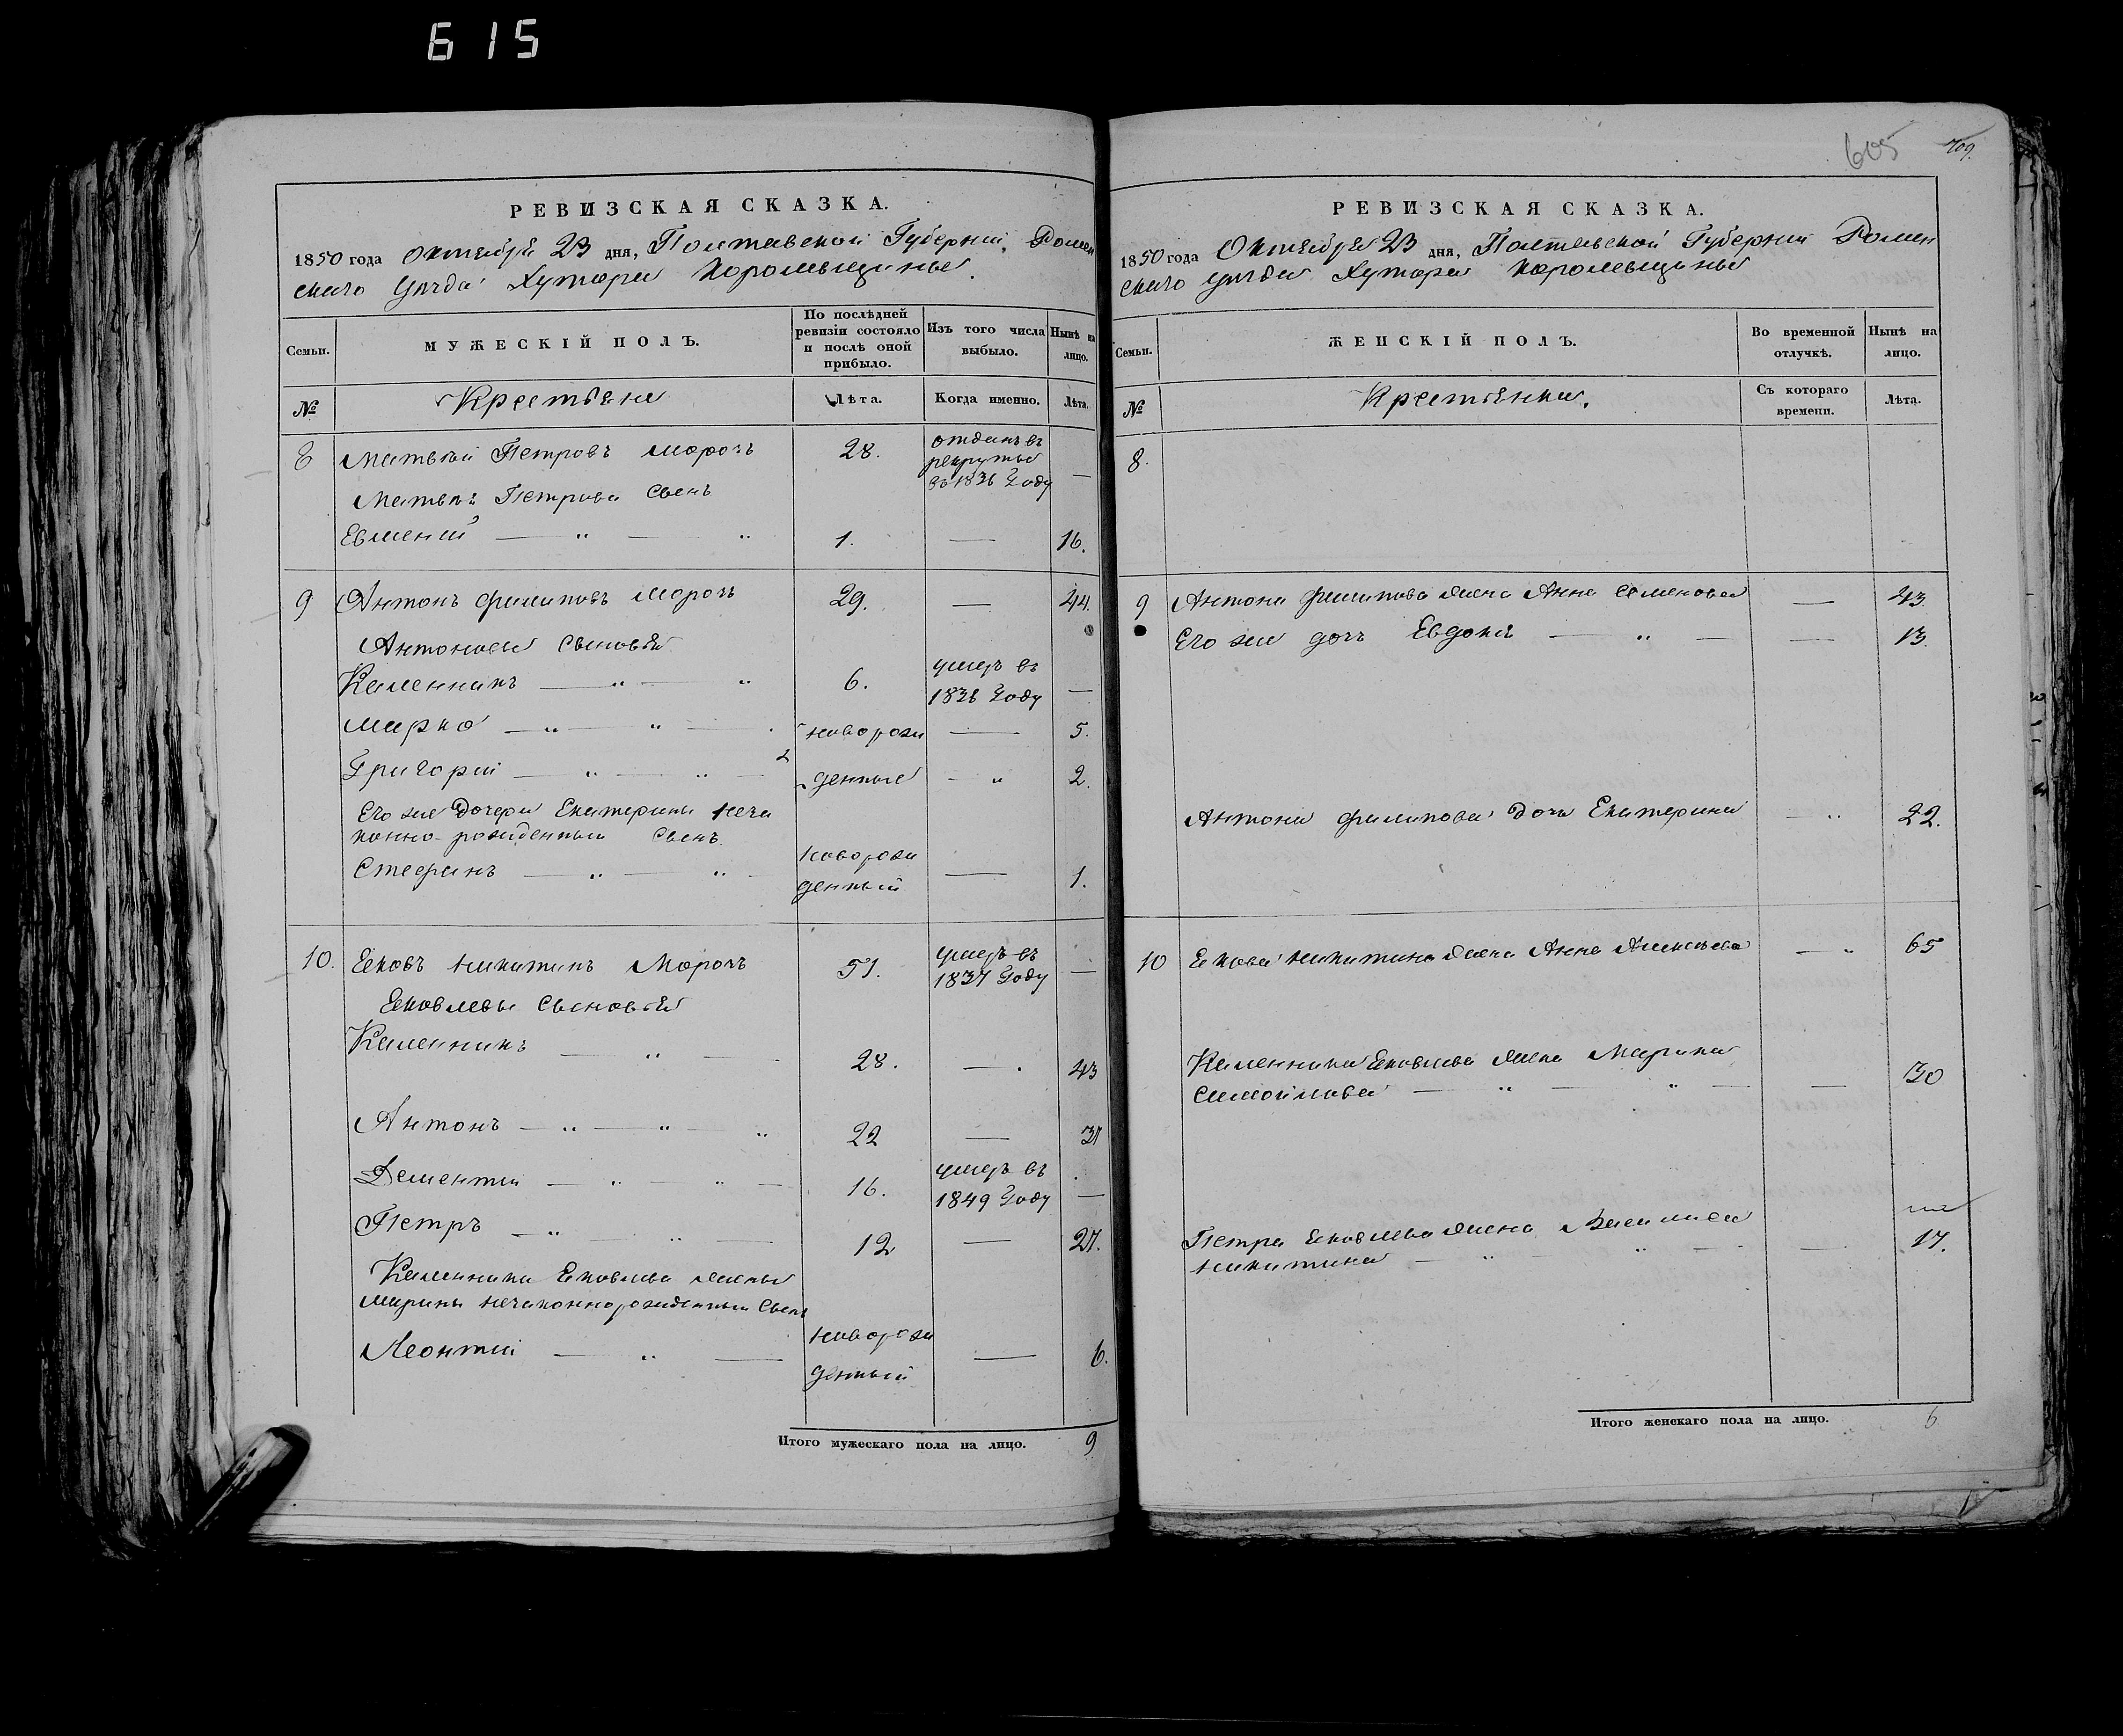 615
605
709.
РЕВИЗСКАЯ СКАЗКА.
1850 года Октября 23 дня, Полтавской Губернии, Ромен
скаго Уѣзда Хутора Королевщины
Семьи.
МУЖЕСКІЙ ПОЛЪ.
По послѣдней ревизіи состояло и послѣ оной прибыло.
Изъ того числа выбыло.
Нынѣ на лицо.
№
Крестьяне
Лѣта.
Когда именно.
Лѣта.
8 Матвѣй Петровъ Морочъ 28. отданъ въ рекруты въ 1836 Году —
Матвѣя Петрова Сынъ
Евмений — „ — „ 1. — 16.
9 Антонъ Филиповъ Морочъ 29. — 44.
Антоновы Сыновья
Каленикъ — „ — „ 6. умеръ въ 1836 Году —
Марко — „ — „ — новорож — 5.
Григорий — „ — „ — денные — „ 2.
Его же Дочери Екатерины неза
конно-рожденный Сынъ
Стефанъ — „ — „ — новорож денный — 1.
10. Яковъ Никитинъ Морочъ 51. умеръ въ 1837 Году —
Яковлевы Сыновья
Каленникъ — „ — 28. — 43
Антонъ — „ — „ — „ 22 — 37
Дементий — „ — „ — 16. умеръ въ 1849 Году —
Петръ — „ — „ — 12 — 27.
Каленника Яковлева жены
Марины незаконнорожденный Сынъ
Леонтий — „ — новорож денный — 6.
Итого мужескаго пола на лицо. 9
РЕВИЗСКАЯ СКАЗКА.
1850 года Октября 23 дня, Полтавской Губернии Ромен
скаго Уѣзда Хутора Королевщины
Семьи.
ЖЕНСКІЙ ПОЛЪ.
Во временной отлучкѣ.
Нынѣ на лицо.
№
Крестьянки.
Съ котораго времени.
Лѣта.
8.
9 Антона Филипова жена Анна Семенова — 43.
Его же дочь Евдокия — „ — — 13.
Антона Филипова дочь Екатерина — „ 22.
10 Якова Никитина жена Анна — „ 65
Каленника Яковлева жена Марина
Самойлова — „ — „ — — 30
Петра Яковлева жена Васи
Никитина — „ — „ — — 17.
Итого женскаго пола на лицо. 6